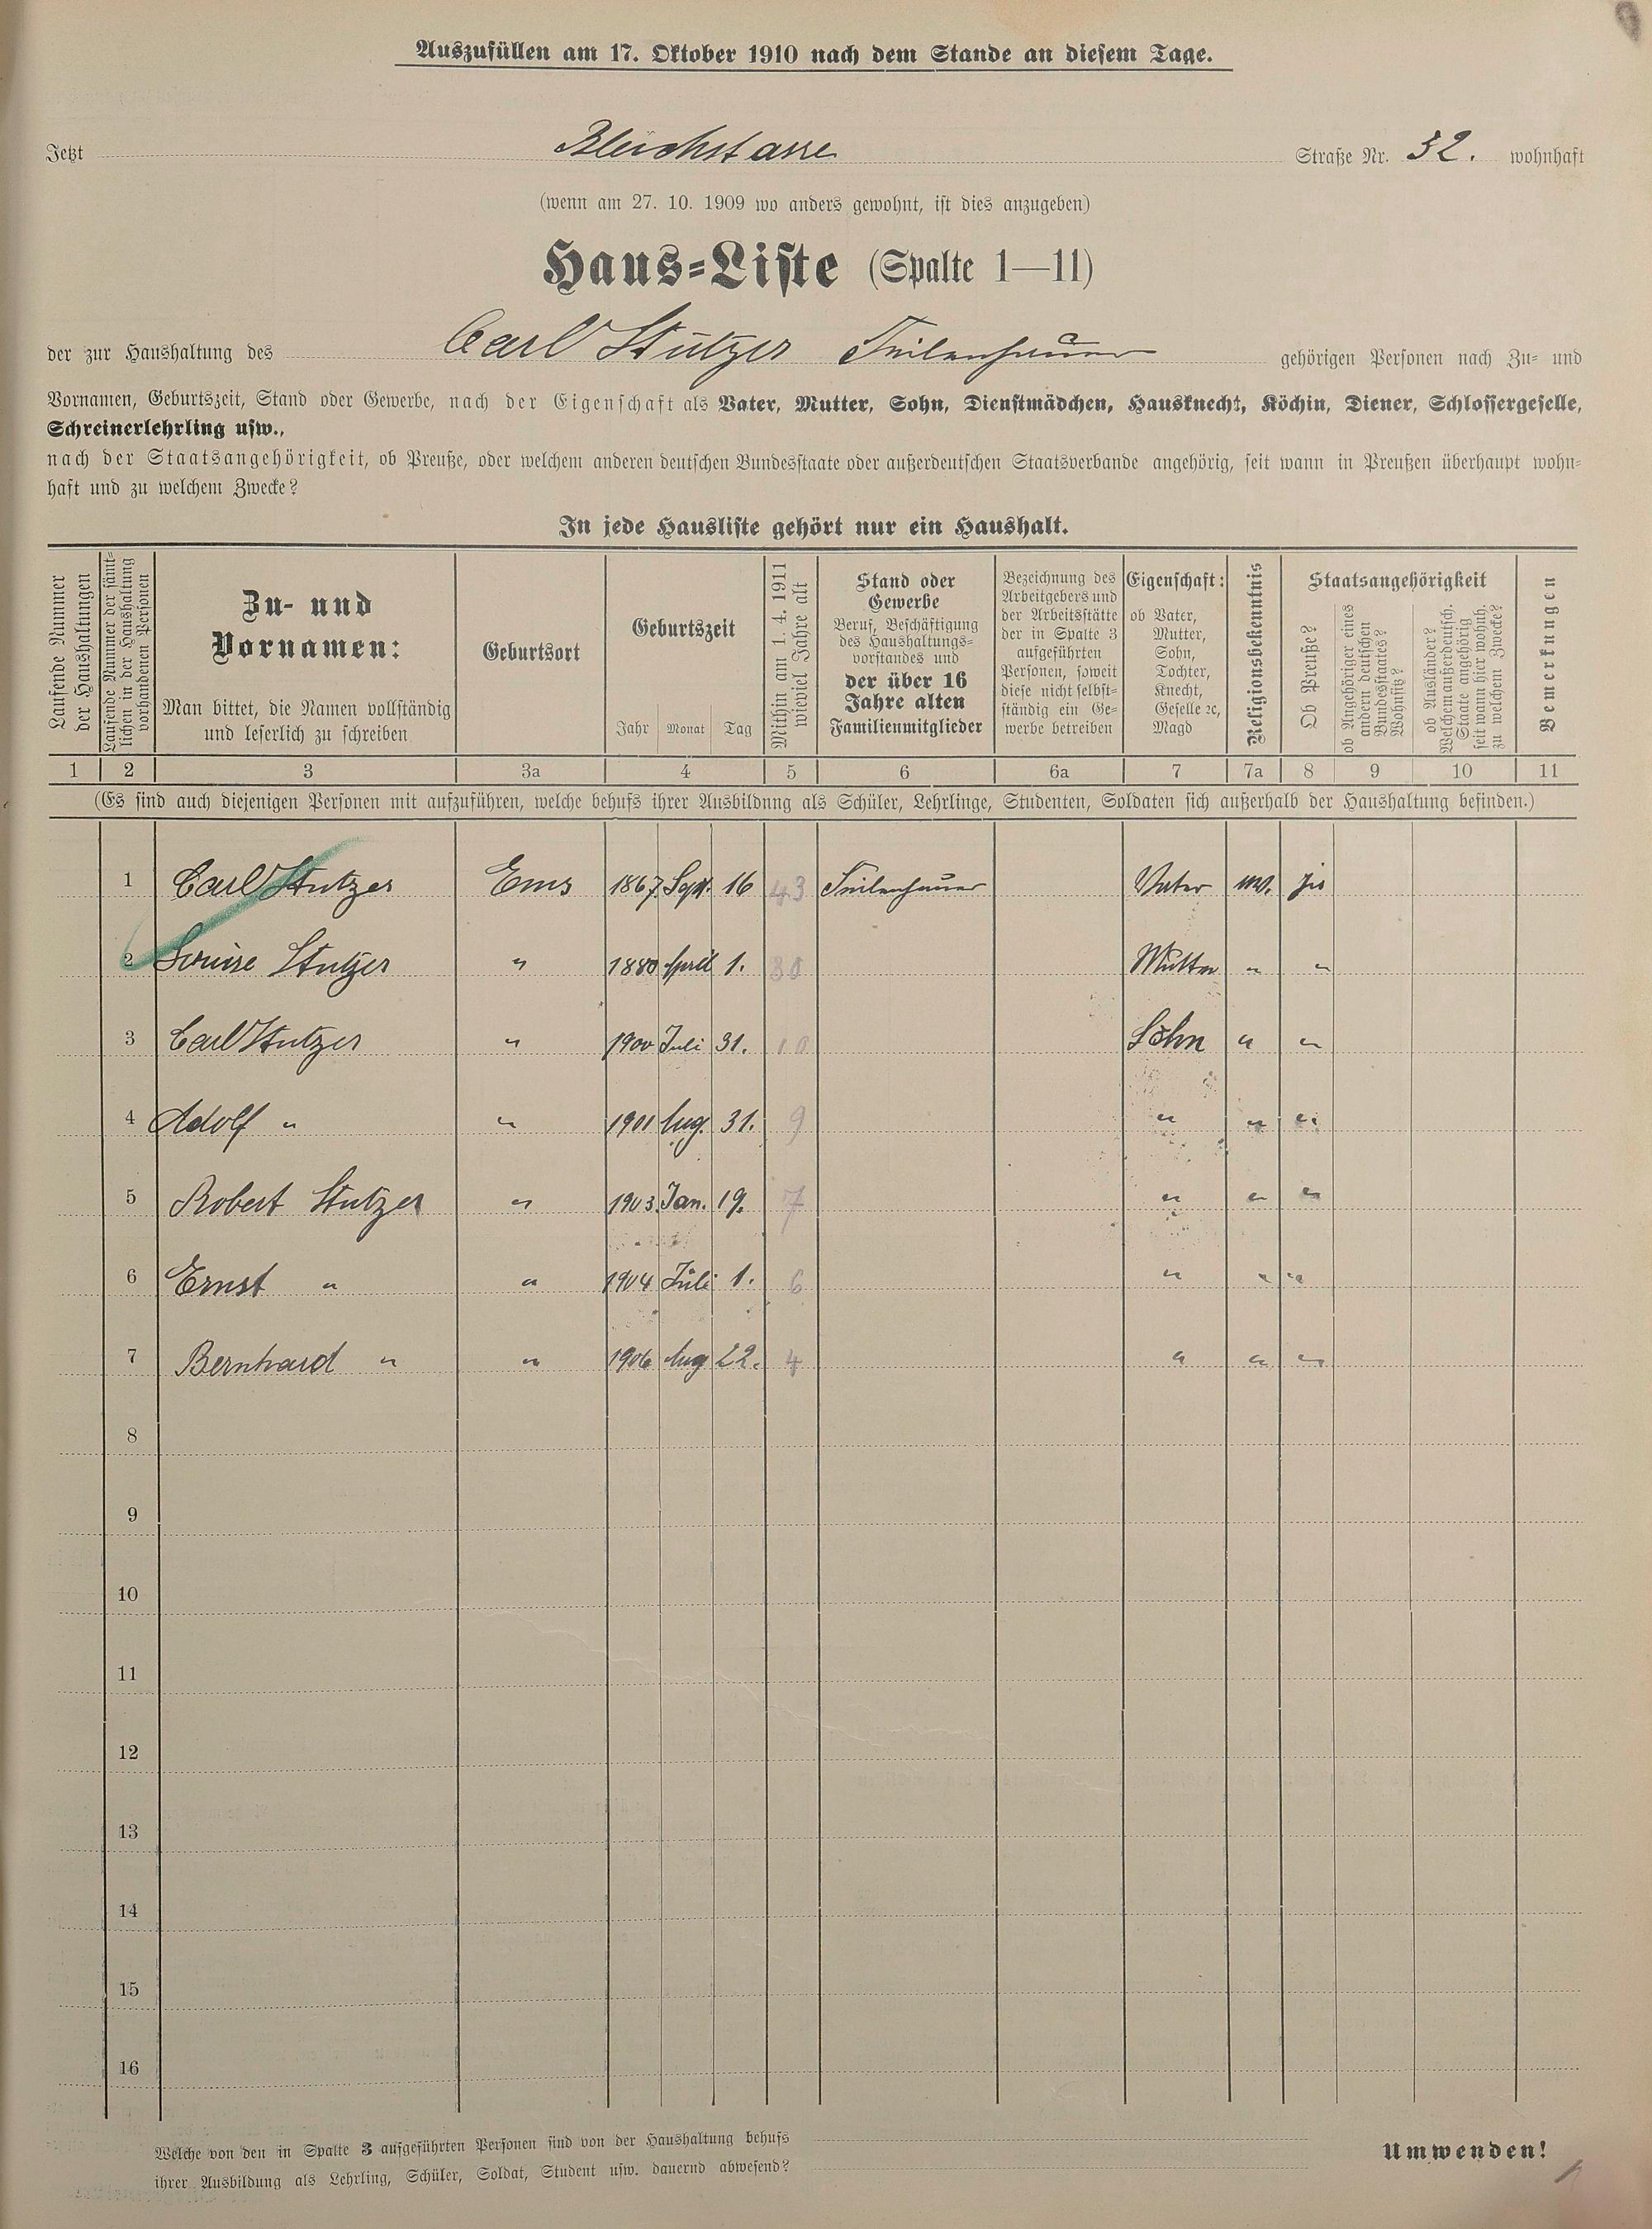 Auszufüllen am 17. Oktober 1910 nach dem Stande an diesem Tage.
Jetzt Bleichstasse Straße Nr. 32. wohnhaft
(wenn am 27. 10. 1909 wo anders gewohnt, ist dies anzugeben)
Haus-Liste (Spalte 1—11)
der zur Haushaltung des Carl Stutzer Feilenhauer gehörigen Personen nach Zu- und
Vornamen, Geburtszeit, Stand oder Gewerbe, nach der Eigenschaft als Vater, Mutter, Sohn, Dienstmädchen, Hausknecht, Köchin, Diener, Schlossergeselle,
Schreinerlehrling usw.,
nach der Staatsangehörigkeit, ob Preuße, oder welchem anderen deutschen Bundesstaate oder außerdeutschen Staatsverbande angehörig, seit wann in Preußen überhaupt wohn-
haft und zu welchem Zwecke?
In jede Hausliste gehört nur ein Haushalt.
Laufende Nummer
der Haushaltungen
Laufende Nummer der sämt-
lichen in der Haushaltung
vorhandenen Personen
Zu- und
Vornamen:
Man bittet, die Namen vollständig
und leserlich zu schreiben
Geburtsort
Geburtszeit
Jahr Monat Tag
Mithin am 1. 4. 1911
wieviel Jahre alt
Stand oder
Gewerbe
Beruf, Beschäftigung
des Haushaltungs-
vorstandes und
der über 16
Jahre alten
Familienmitglieder
Bezeichnung des
Arbeitgebers und
der Arbeitsstätte
der in Spalte 3
aufgeführten
Personen, soweit
diese nicht selbst-
ständig ein Ge-
werbe betreiben
Eigenschaft:
ob Vater,
Mutter,
Sohn,
Tochter,
Knecht,
Geselle ꝛc,
Magd
Religionsbekenntnis
Staatsangehörigkeit
Ob Preuße?
ob Angehöriger eines
andern deutschen
Bundesstaates?
Wohnsitz?
ob Ausländer?
Welchem außerdeutsch.
Staate angehörig
seit wann hier wohnh.
zu welchem Zwecke?
Bemerkungen
1 2 3 3a 4 5 6 6a 7 7a 8 9 10 11
(Es sind auch diejenigen Personen mit aufzuführen, welche behufs ihrer Ausbildung als Schüler, Lehrlinge, Studenten, Soldaten sich außerhalb der Haushaltung befinden.)
1 Carl Stutzer Ems 1867. Sept. 16 43 Feilenhauer Vater ja
2 Louise Stutzer " 1880 April 1. 30 Mutter " "
3 Carl Stutzer " 1900 Juli 31. 10 Sohn " "
4 Adolf " " 1901 Aug. 31. 9 " " "
5 Robert Stutzer " 1903. Jan. 19. 7 " " "
6 Ernst " " 1904 Juli 1. 6 " " "
7 Bernhard " " 1906 Aug 22. 4 " " "
8
9
10
11
12
13
14
15
16
Welche von den in Spalte 3 aufgeführten Personen sind von der Haushaltung behufs
ihrer Ausbildung als Lehrling, Schüler, Soldat, Student usw. dauernd abwesend?
Umwenden!